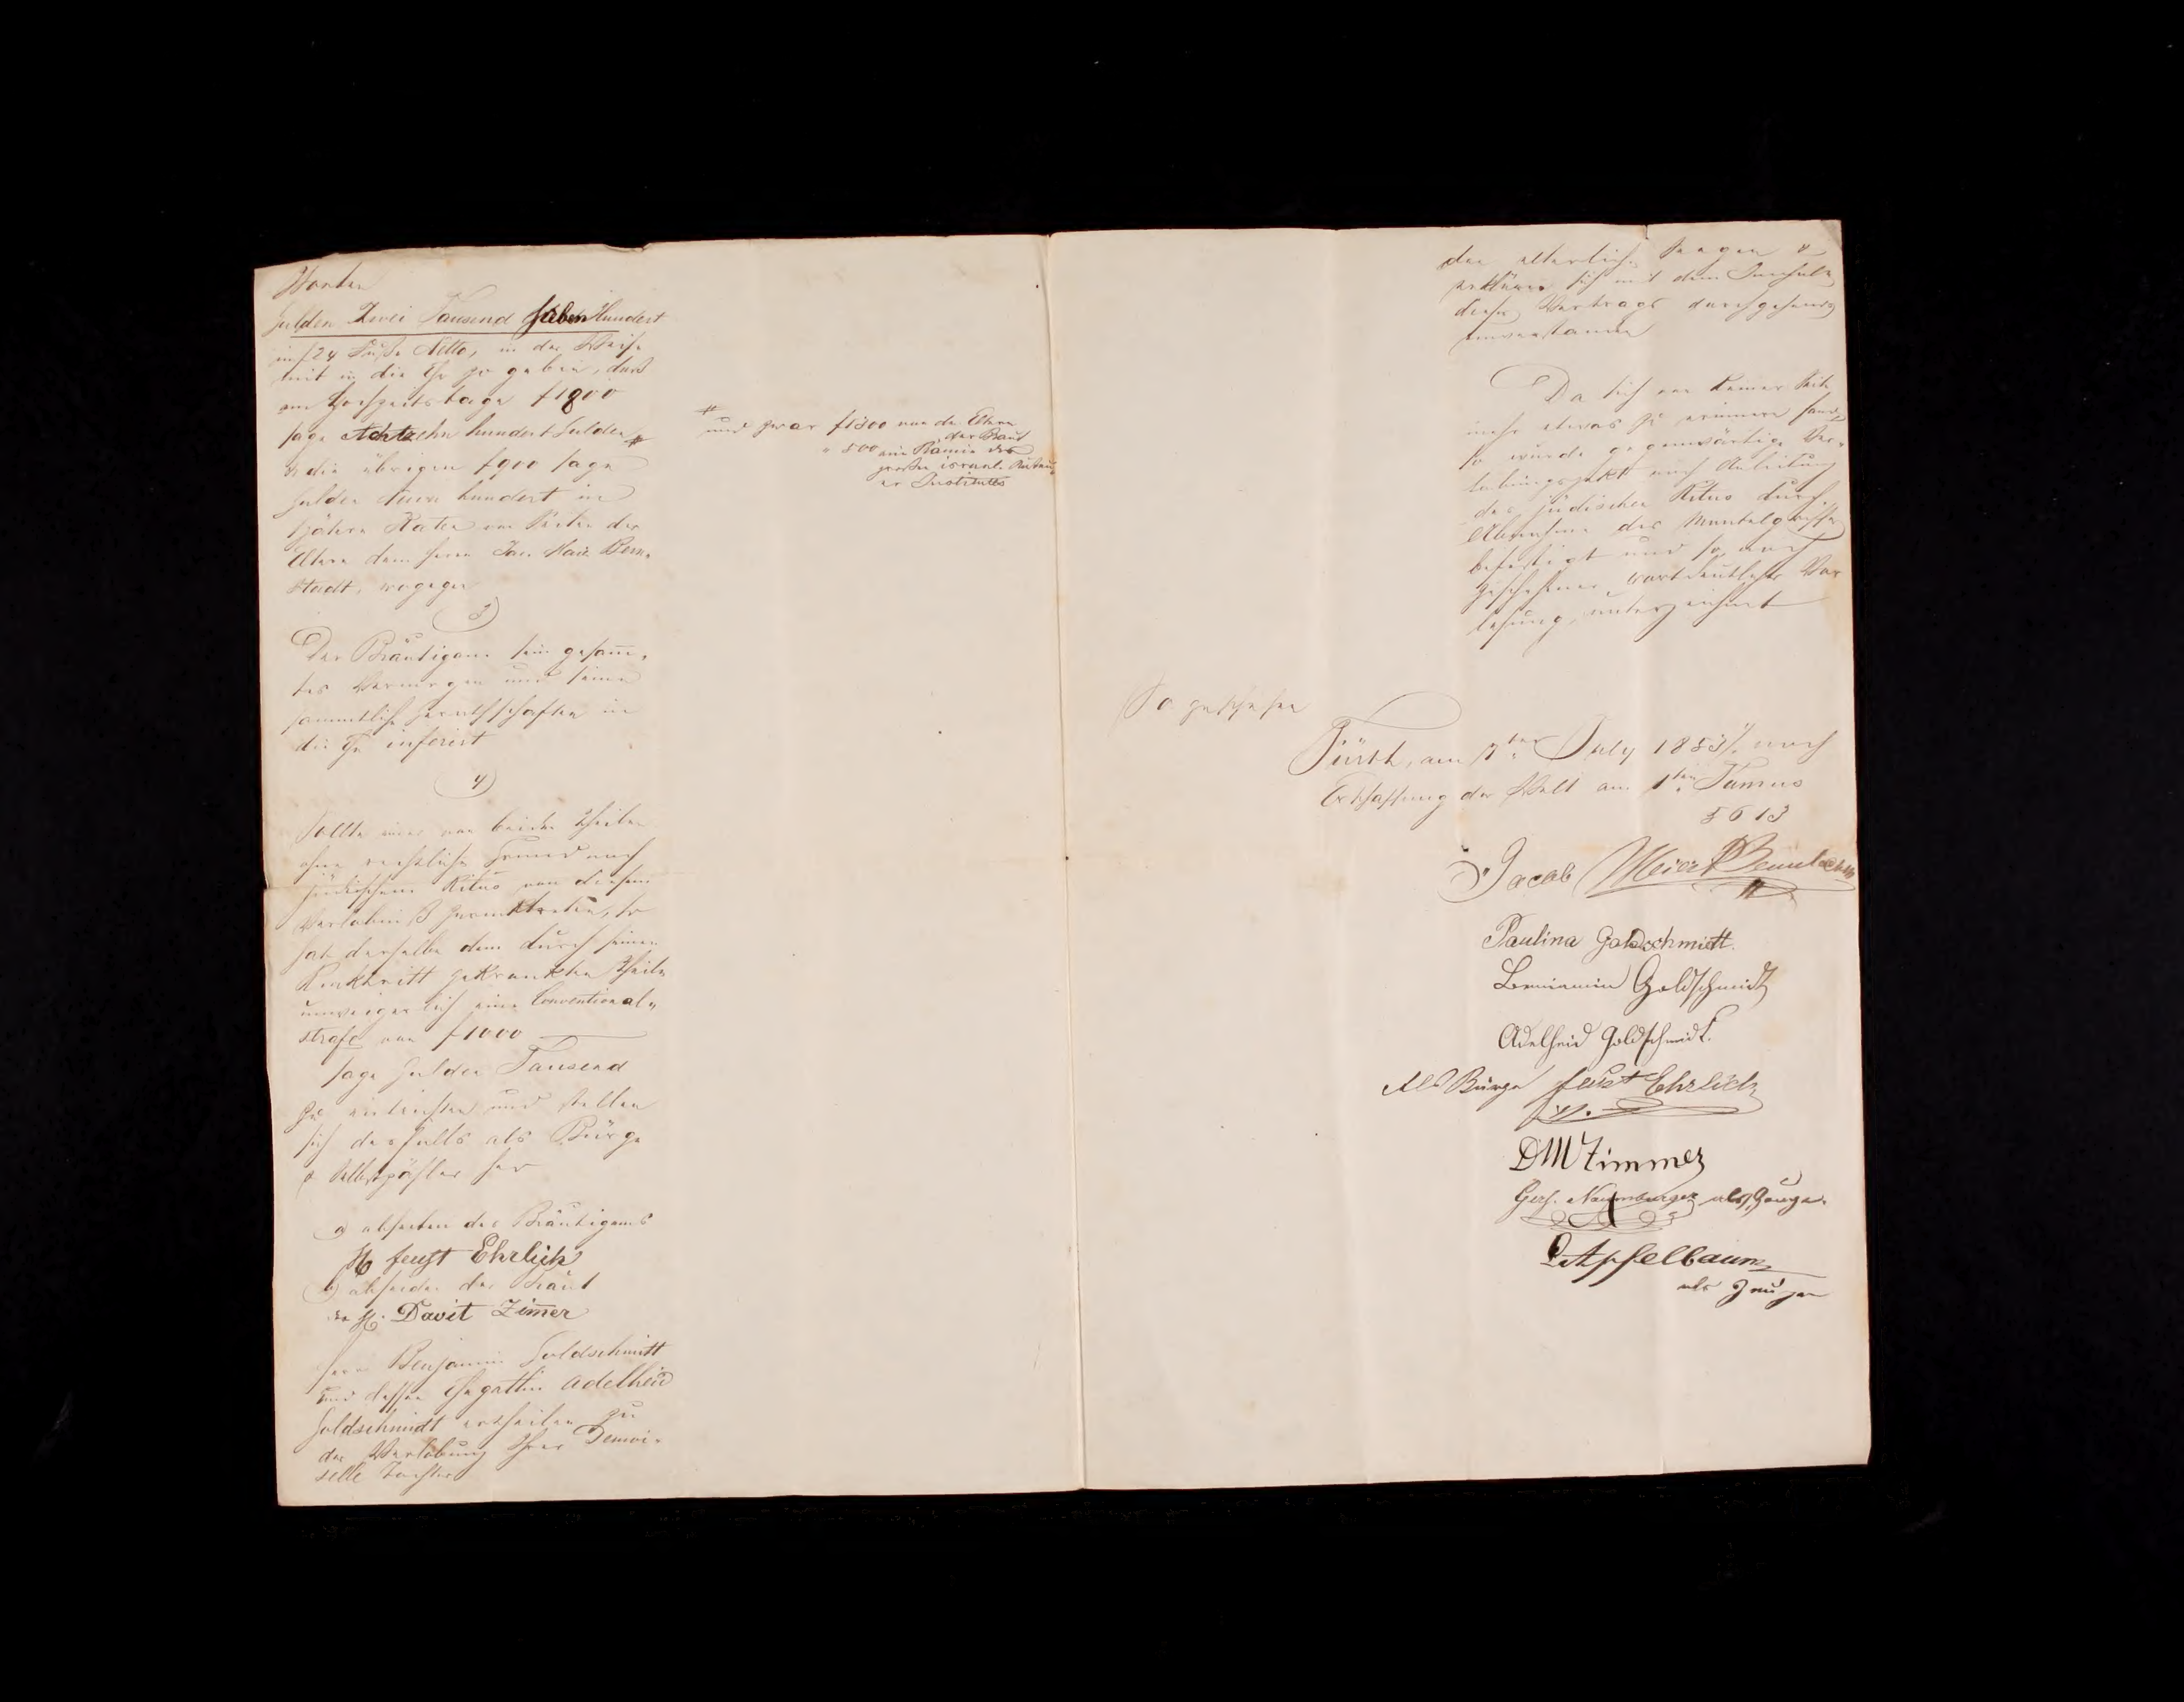 Worten
Gulden Zwei Tausend sieben Hundert
im f 24 Fuße Netto, in der Weise
mit in die Ehe zu geben, daß
am Hochzeitstage f 1800
sage Achtzehn hundert Gulden #
& die übrigen f 900 sage
Gulden Neun hundert in
Raten von Seiten der
Eltern dem Herrn Jac. Maier Bern-
stadt, wogegen
3)
Der Bräutigam sein gesamm-
tes Vermögen und seine
sammtliche Geräthschaften in
die Ehe inferirt
4)
Sollte einer von beiden Theilen
ohne rechtlichen Grund nach
jüdischem Ritus von diesem
Verlöbniß zurücktreten, so
hat derselbe dem durch seinen
Rücktritt gekränkten Theile
unweigerlich eine Conventional-
strafe von f 1000
sage Gulden Tausend
zu entrichten und stellen
sich desfalls als Bürge
& Selbstzahler her
a) abseiten des Bräutigams
H. feust Ehrlich
b) abseiten der Braut
H. Davit Zim̄er
Herr Benjamin Goldschmitt
und dessen Ehegattin Adelheid
Goldschmidt ertheilen zu
der Verlobung Ihrer Demoi-
selle Tochter
# und zwar f 1300 von den Eltern
der Braut
" 500 ein Prämie des
großen israel.
er Institutes
den elterlichen Segen &
erklären sich mit dem Inhalte
dieses Vertrags durchgehends
einverstanden
Da sich von keiner Seite
mehr etwas zu erinnern fand,
so wurde gegenwärtige Ver-
lobungsakt nach Anleitung
des jüdischen Ritus durch
Abnahme des Mantelgriffes
befestigt und so nach
geschehener, wortdeutlicher Vor
lesung unterzeichnet
So geschehen
Fürth, am 7ten July 1853 nach
Erschaffung der Welt am 1ten Tamus
5613
Jacob Meier Bernstadt
Paulina Goldschmitt.
Benniamin Goldschmidt
Adelheid Goldschmidt.
Als Bürge feust Ehrlich
DM Zimmer
Gerh. Naumburger als Zeuge.
Apfelbaum
als Zeuge